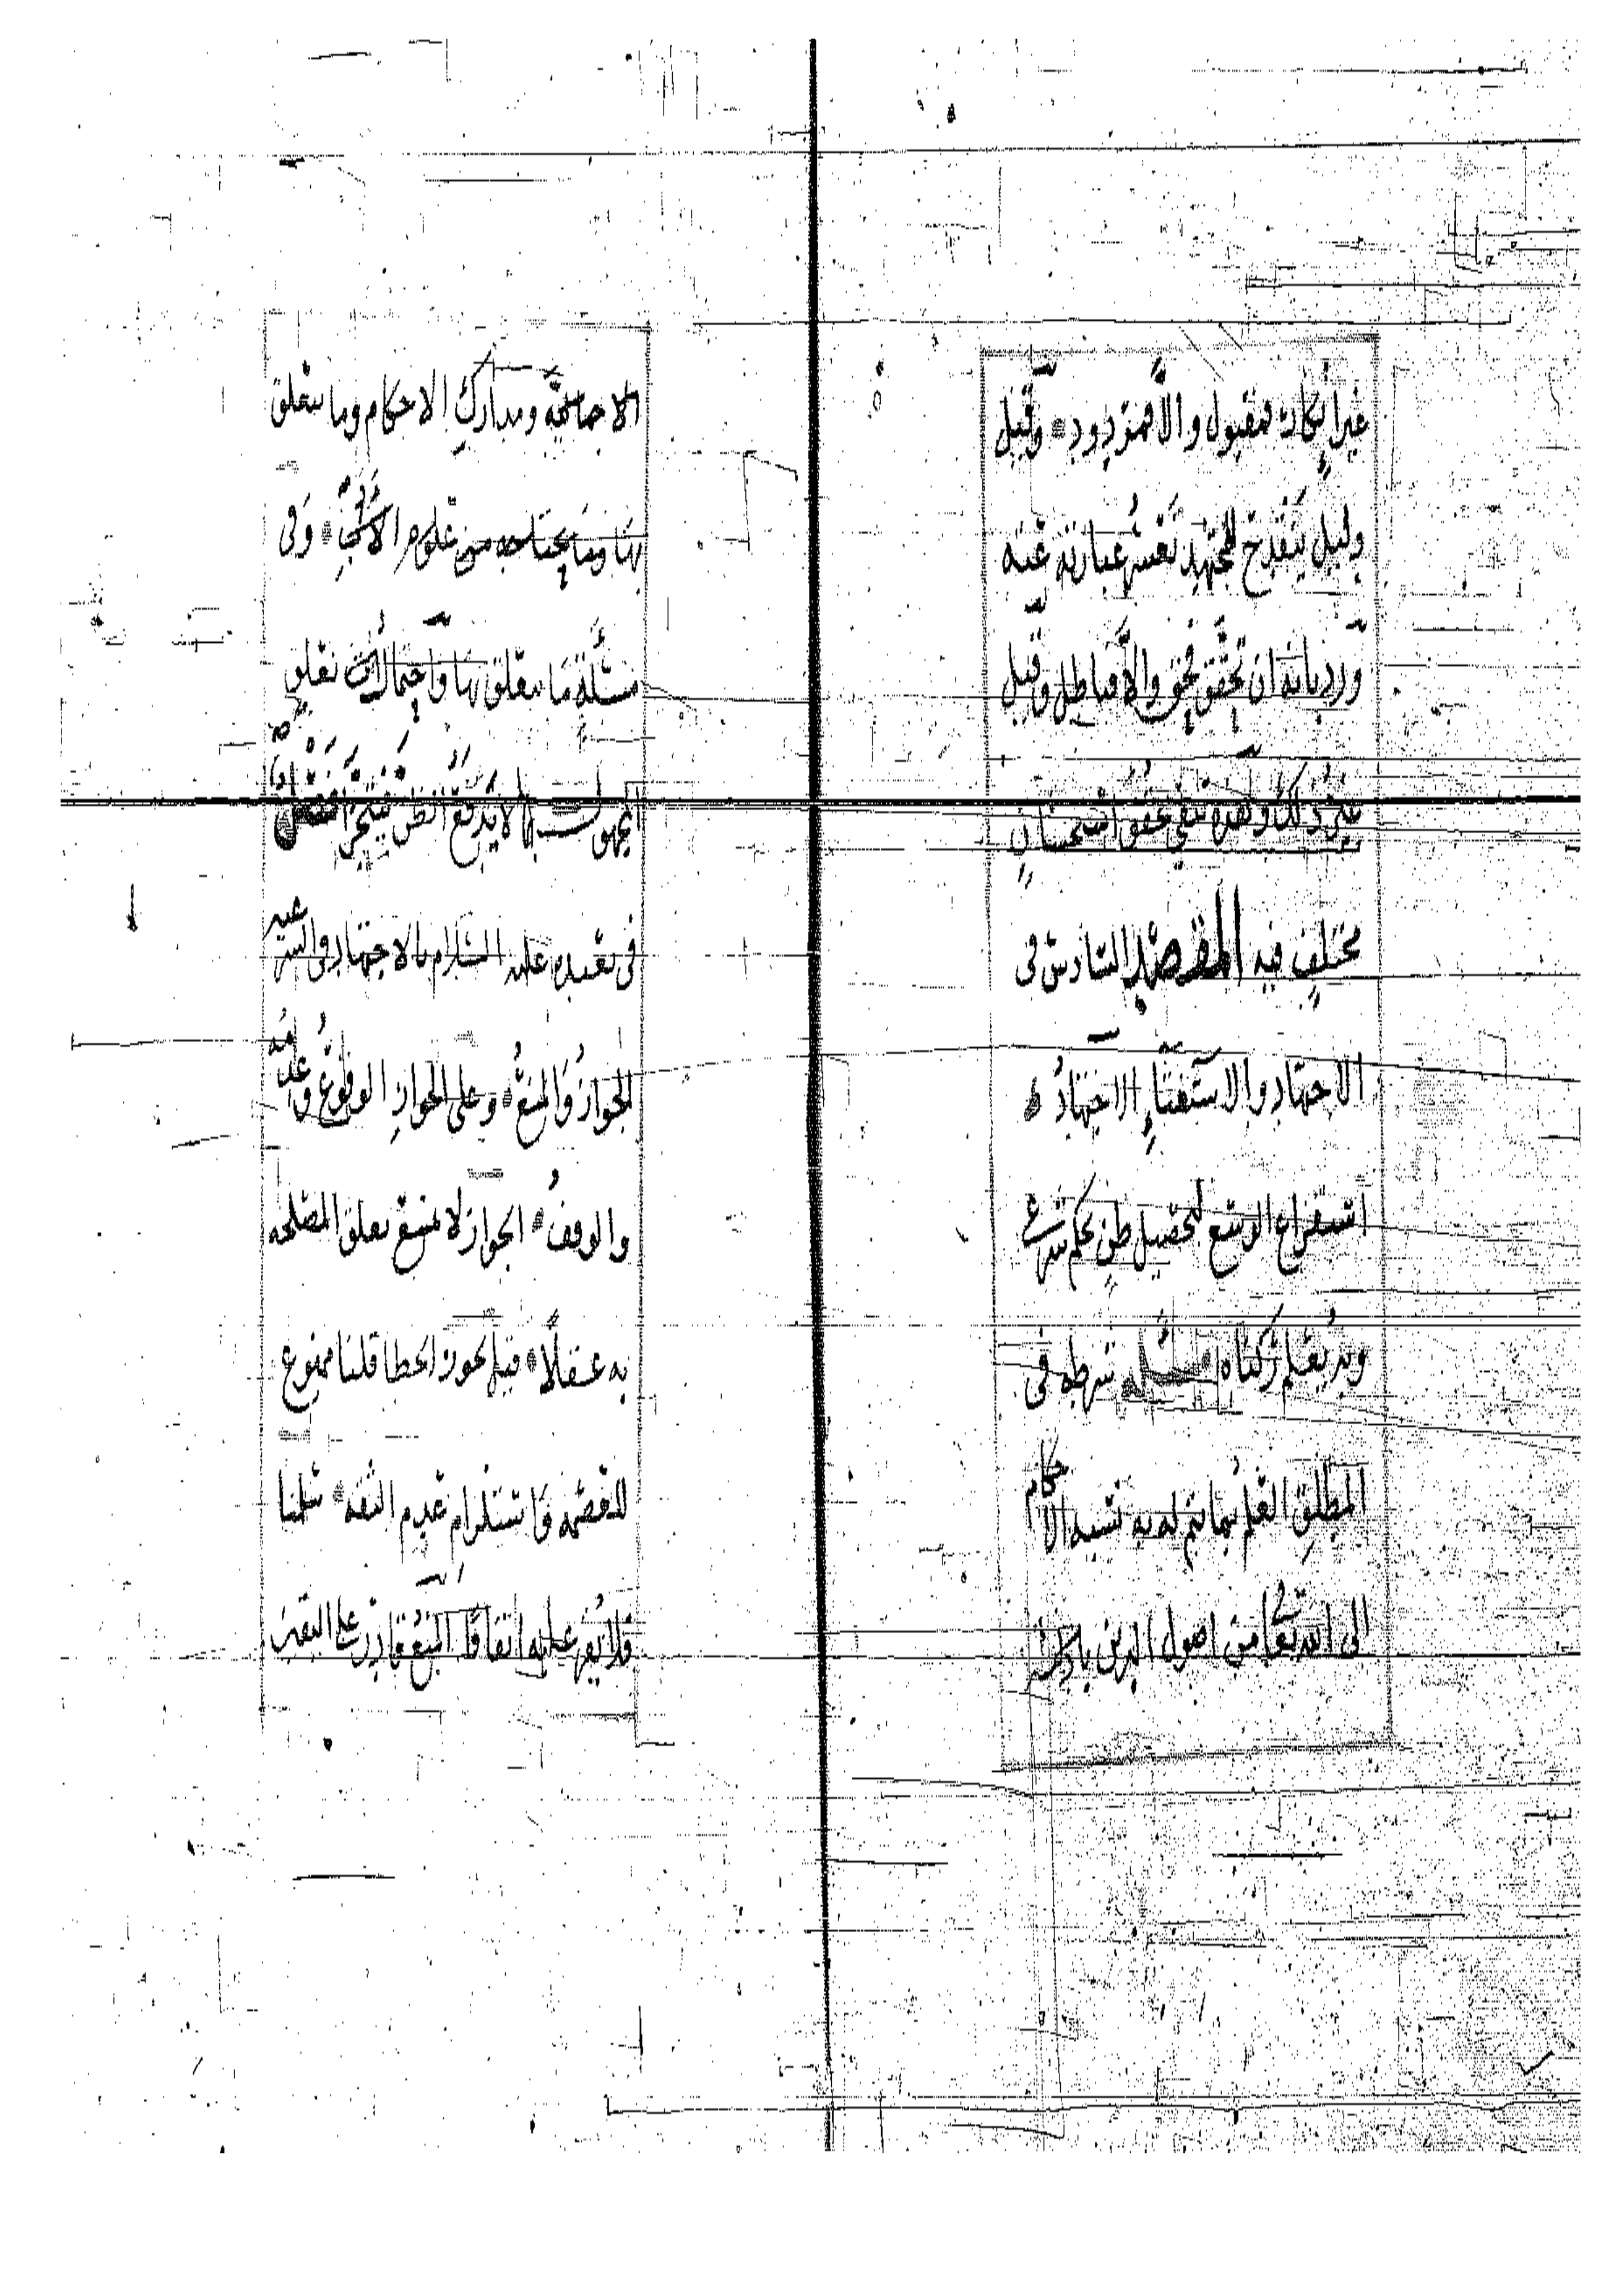 غير انكار فمقبول والا فمردود وقيل
دليل ينقدح للمجتهد تعسر عبارته عنه
ورد بانه ان تحقق فحق والا فباطل وقيل
غير ذلك ولهذه نفى تحقق استحسان
مختلف فيه المقصد السادس في
الاجتهاد والاستفتاء الاجتهاد
استفراغ الوسع لتحصيل ظن بحكم شرعي
وبه يعلم ركناه مسئلة شرطه في
المطلق العلم بما يتم له به نسبه الاحكام
الى الله تعا من اصول الدين
ومدارك الاحكام وما يتعلق
بها وما يحتاجه من علوم وفي
مسئلة ما يتعلق بها واحتمال تعلق
المجهولات بها لا يدفع الظن فيتجزا
في تعبده عليه السلام بالاجتهاد في الشرعيه
الجواز والمنع وعلى الجواز الوقوع وعدمه
والوقف الجواز لا يمتنع تعلق المصلحه
به عقلا قيل يجوز الخطا قلنا ممنوع
للعصمه واستلزام عدم الثقه سلمنا
فلا يقر عليه اتفاقا المنع قادر على اليقين